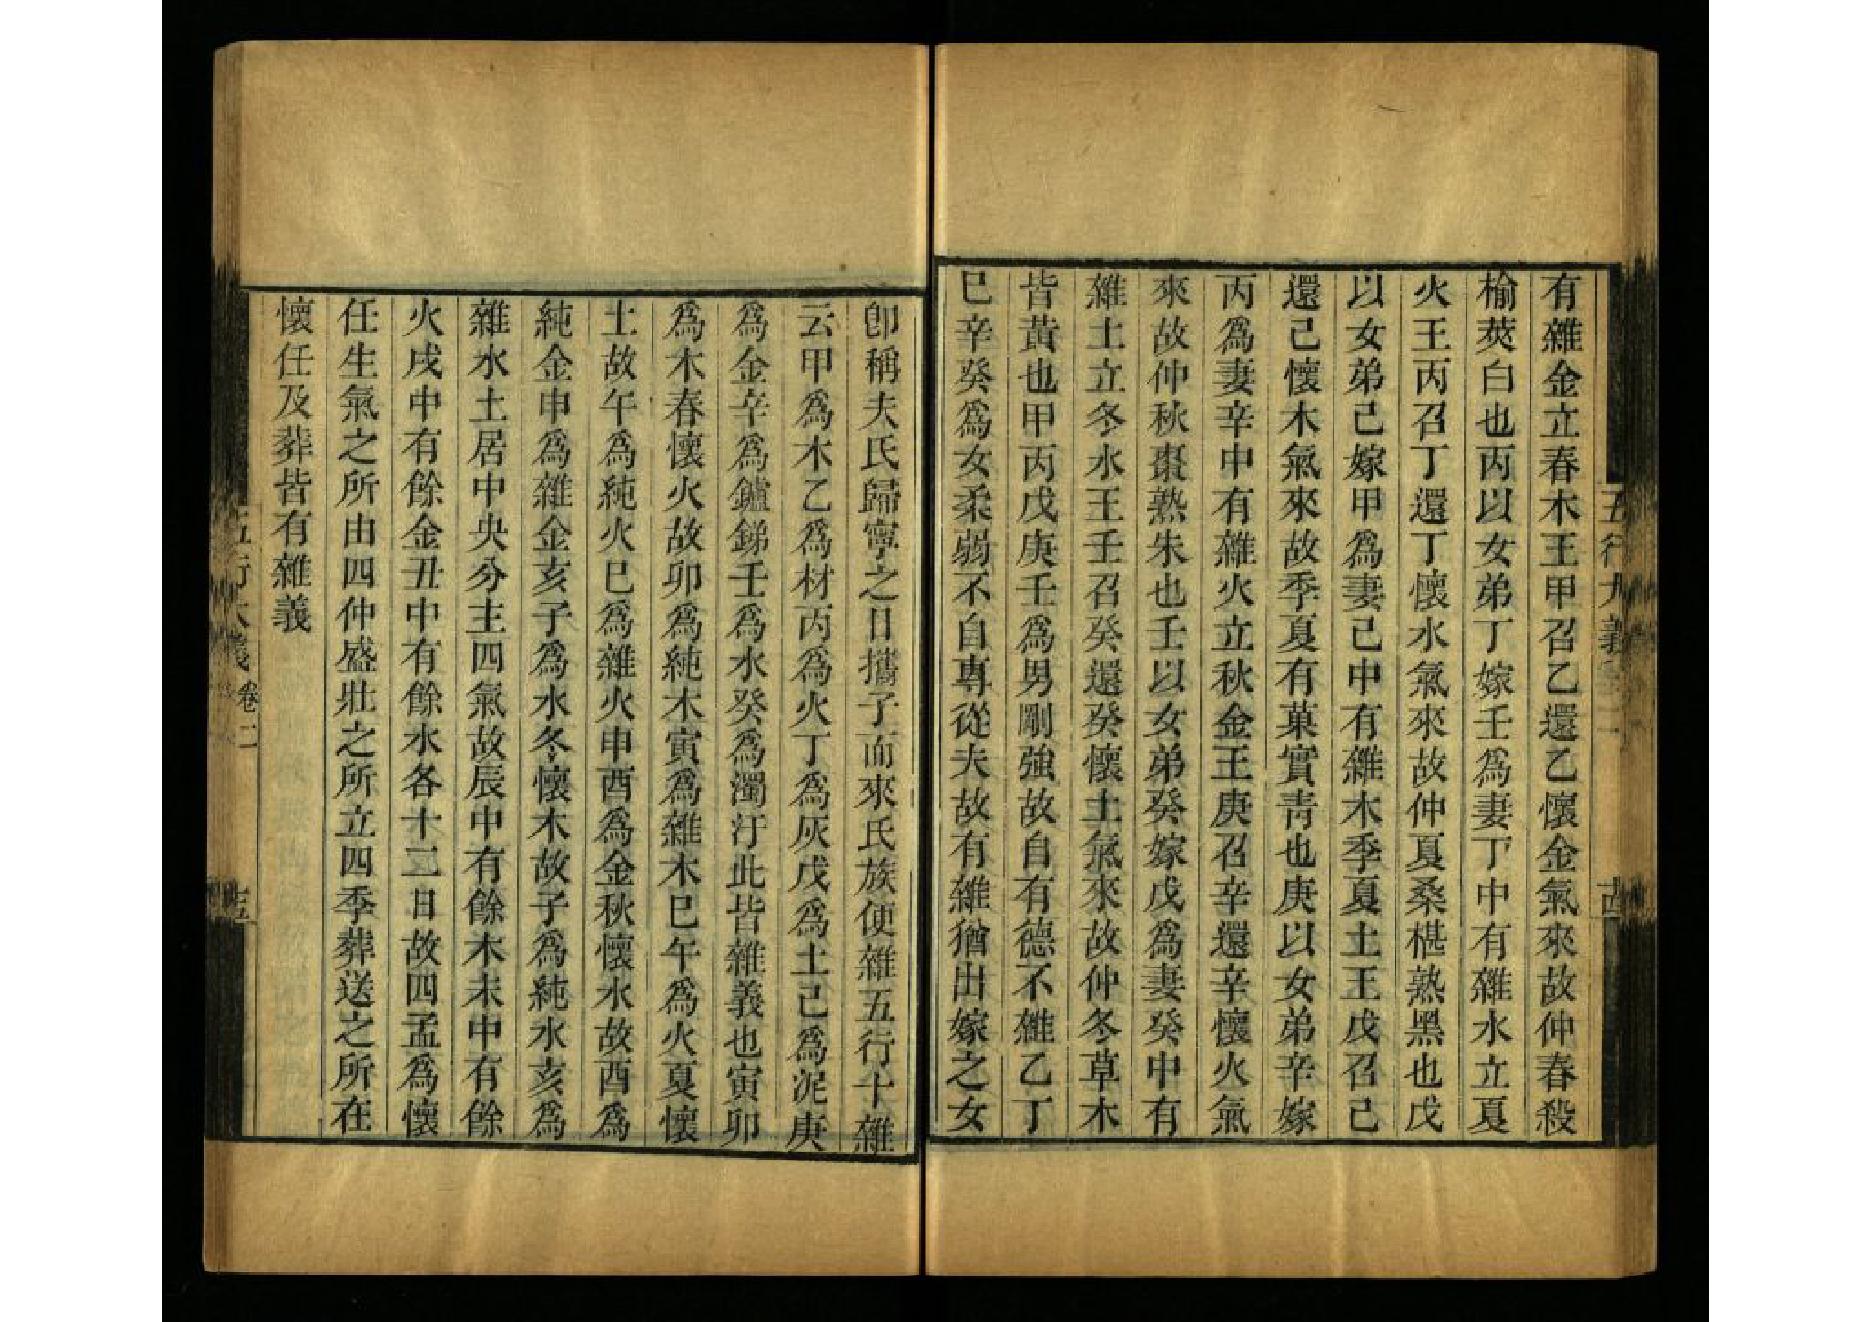 有雜金立春木王甲召乙還乙懷金氣來故仲春殺
榆莢白也丙以女弟丁嫁壬爲妻丁中有雜水立夏
火王丙召丁還丁懷水氣來故仲夏桑椹熟黑也戊
以女弟己嫁甲爲妻己中有雜木季夏土王戊召己
還己懷木氣來故季夏有菓實靑也庚以女弟辛嫁
丙爲妻辛中有雜火立秋金王庚召辛還辛懷火氣
來故仲秋棗熟朱也壬以女弟癸嫁戊爲妻癸中有
雜土立冬水王壬召癸還癸懷土氣來故仲冬草木
皆黃也甲丙戊庚壬爲男剛強故自有德不雜乙丁
巳辛癸爲女柔弱不自專從夫故有雜猶出嫁之女
五行大義
卽稱夫氏歸寧之日攜子而來氏族便雜五行十雜
云甲爲木乙爲材丙爲火丁爲灰戊爲土己爲泥庚
爲金辛爲鑪銻壬爲水癸爲濁汙此皆雜義也寅卯
爲木春懷火故卯爲純木寅爲雜木巳午爲火夏懷
土故午爲純火巳爲雜火申酉爲金秋懷水故酉爲
純金申爲雜金亥子爲水冬懷木故子爲純水亥爲
雜水土居中央分主四氣故辰中有餘木未中有餘
火戌中有餘金丑中有餘水各十二日故四孟爲懷
任生氣之所由四仲盛壯之所立四季葬送之所在
懷任及葬皆有雜義
五行大義 卷二